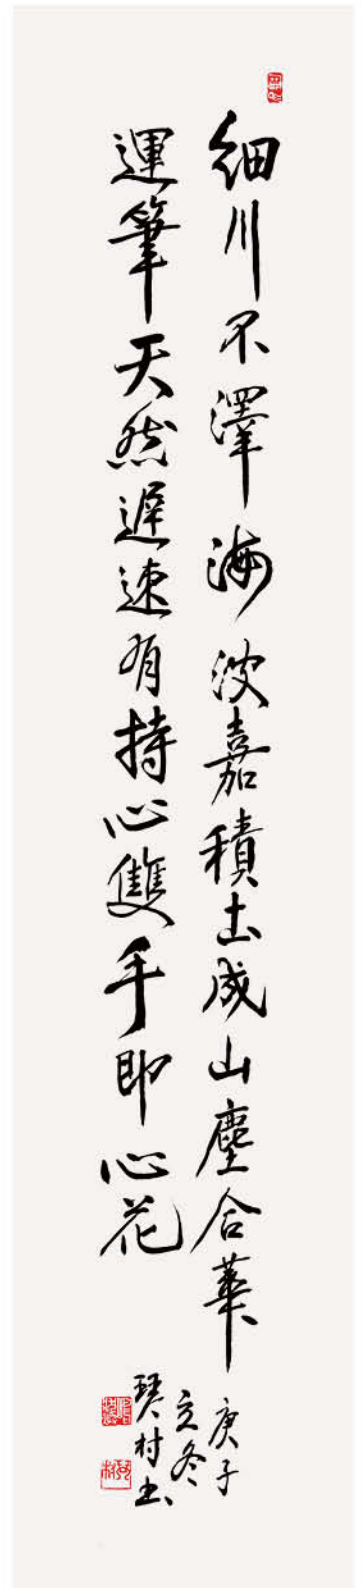 細川不澤海波嘉積土成山塵合華
運筆天然遲速有持心雙手即心花
庚子
立冬
琴村书